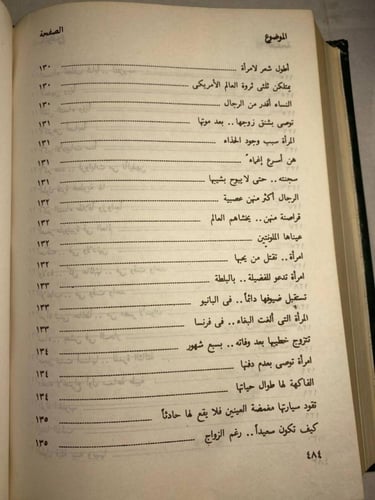 الموضوع الصفحة
أطول شعر لامرأة ١٣٠
يمتلكن ثلثى ثروة العالم الأمريكى ١٣٠
النساء أقدر من الرجال ١٣٠
توصى بشنق زوجها .. بعد موتها ١٣١
المرأة سبب وجود الحذاء ١٣١
هن أسرع إغماءً ١٣١
سجنته .. حتى لا يبوح بشيبها ١٣١
الرجال أكثر منهن عصبية ١٣٢
قراصنة منهن .. يخشاهم العالم ١٣٢
عيناها الملونتين ١٣٢
امرأة .. تقتل من يحبها ١٣٢
امرأة تدعو للفضيلة .. بالبلطة ١٣٣
تستقبل ضيوفها دائماً .. فى البانيو ١٣٣
المرأة التى ألغت البغاء .. فى فرنسا ١٣٣
تتزوج خطيبها بعد وفاته .. بسبع شهور ١٣٤
امرأة توصى بعدم دفنها ١٣٤
الفاكهة لها طوال حياتها ١٣٤
تقود سيارتها مغمضة العينين فلا يقع لها حادثاً ١٣٥
كيف تكون سعيداً .. رغم الزواج ١٣٥
٤٨٤